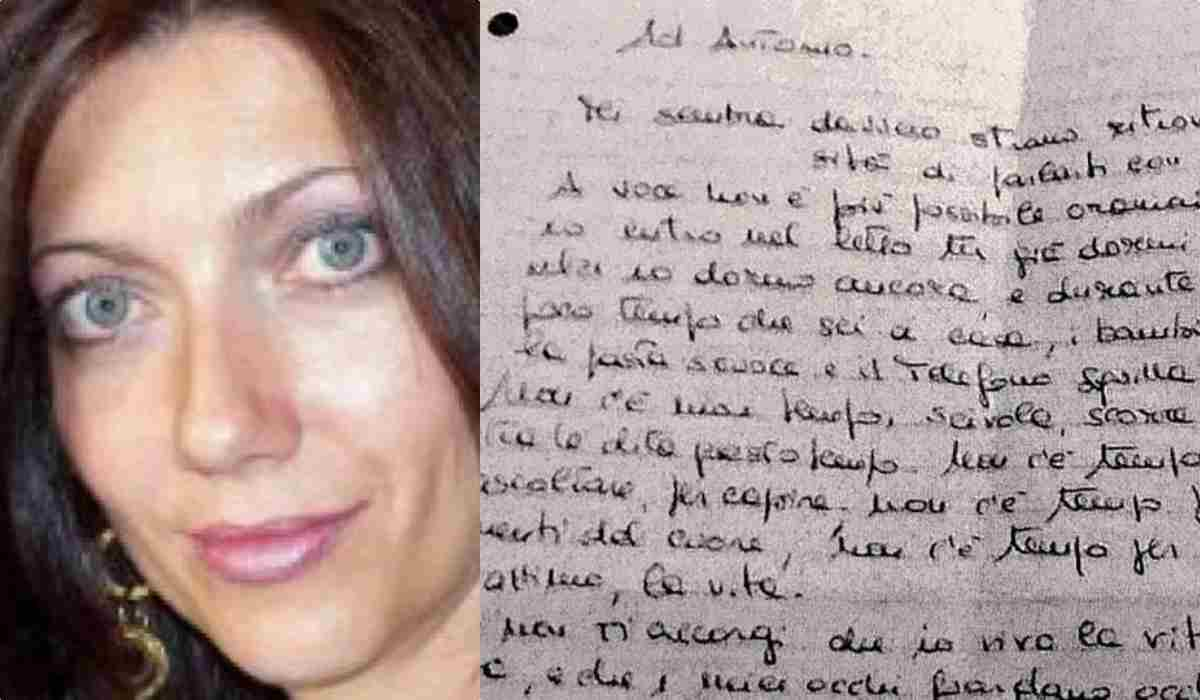 Ad Antonio.
Mi sembra davvero strano ritrov
di parlarti con
A voce non è più possibile oramai
io entro nel letto tu già dormi
io dormo ancora, e durante
poco tempo che sei a casa, i bambi
la pasta scuoce e il telefono squilla
Non c'è mai tempo, scivola, scorre
tra le dita questo tempo. Non c'è tempo
ascoltare, per capire non c'è tempo p
menti del cuore, non c'è tempo per
attimo, la vita.
Non ti accorgi che io vivo la vit
e, e che i miei occhi guardano